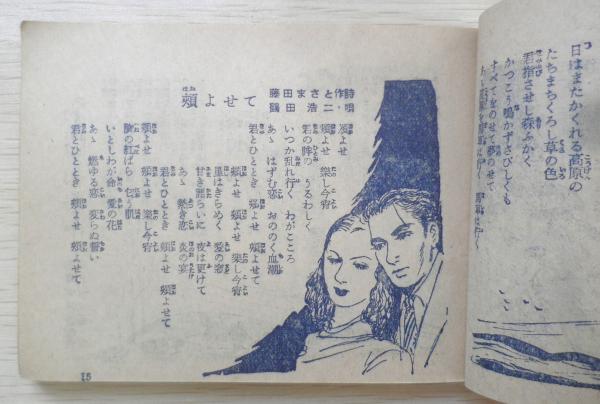 日はまたかくれる高原の
たちまちくろし草の色
君指させし森ふかく
かつこう鳴かずさびしくも
すべてをのせて夢のせて
頬よせて
藤田まさと作詩
鶴田浩二・唄
頬よせ 頬よせ 楽し今宵
君の眸の うるわしく
いつか乱れ行く わがこころ
あゝ はずむ恋 おののく血潮
君とひととき 頬よせ 頬よせて
頬よせ 頬よせ 楽し今宵
星はきらめく 愛の窓
甘き語らいに 夜は更けて
あゝ 熱き恋 炎の宴
君とひととき 頬よせ 頬よせて
頬よせ 頬よせ 楽し今宵
胸の紅ばら 匂う肌
いとしわが命 愛の花
あゝ 燃ゆる恋 変らぬ誓い
君とひととき 頬よせ 頬よせて
15